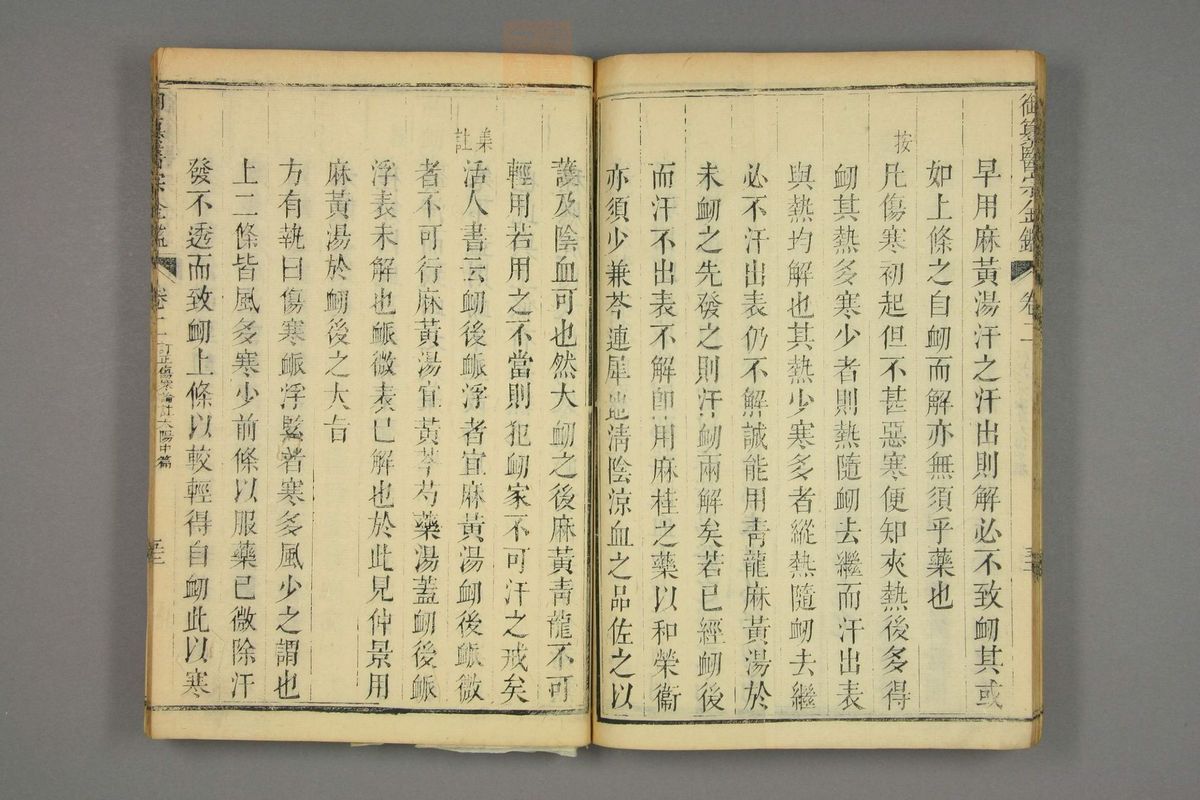 御纂醫宗金鑑 卷二
早用麻黃湯汗之汗出則解必不致衂其或
如上條之自衂而解亦無須乎藥也
按
凡傷寒初起但不甚惡寒便知夾熱後多得
衂其熱多寒少者則熱隨衂去繼而汗出表
與熱均解也其熱少寒多者縱熱隨衂去繼
必不汗出表仍不解誠能用靑龍麻黃湯於
未衂之先發之則汗衂兩解矣若已經衂後
而汗不出表不解卽用麻桂之藥以和榮衞
亦須少兼芩連犀地淸陰涼血之品佐之以
護及陰血可也然大衂之後麻黃靑龍不可
輕用若用之不當則犯衂家不可汗之戒矣
集註
活人書云衂後脈浮者宜麻黃湯衂後脈微
者不可行麻黃湯宜黃芩芍藥湯蓋衂後脈
浮表未解也脈微表已解也於此見仲景用
麻黃湯於衂後之大旨
方有執曰傷寒脈浮緊者寒多風少之謂也
上二條皆風多寒少前條以服藥已微除汗
發不透而致衂上條以較輕得自衂此以寒
御纂醫宗金鑑 卷二 訂正傷寒論註太陽中篇